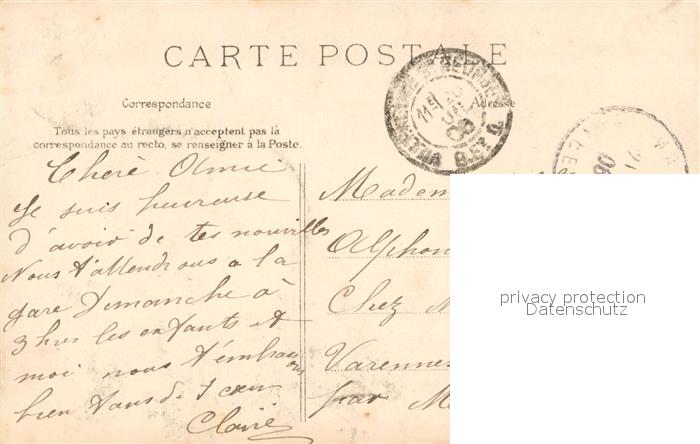 CARTE POSTALE
Correspondance
Adresse
Tous les pays étrangers n'acceptent pas la
correspondance au recto, se renseigner à la Poste.
Chère Amie
Je suis heureuse
d'avoir de tes nouvelles
Nous t'attendrons a la
gare Dimanche à
3 hres les enfants et
moi nous t'embrassons
bien tous de t cœur
Claire
Madem
Alphon
Chez M
Varennes
par M
privacy protection
Datenschutz